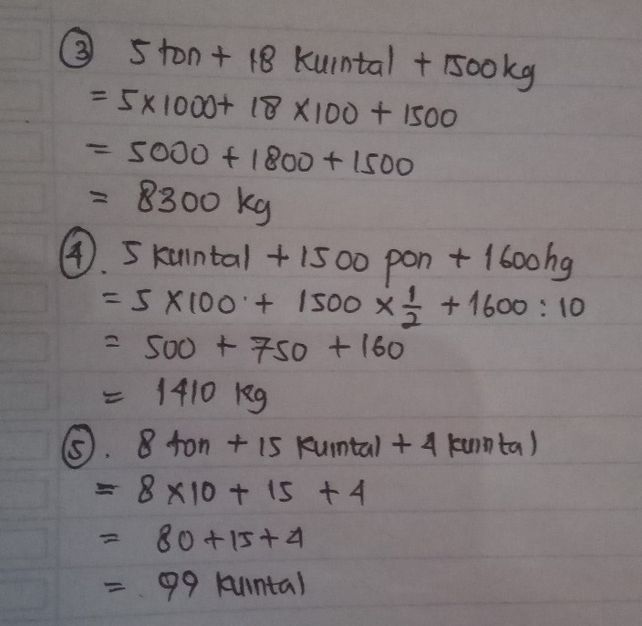 ③ 5 ton + 18 Kuintal + 1500kg
= 5 × 1000 + 18 × 100 + 1500
= 5000 + 1800 + 1500
= 8300 kg
④. 5 Kuintal + 1500 pon + 1600hg
= 5 × 100 + 1500 × 1/2 + 1600 : 10
= 500 + 750 + 160
= 1410 kg
⑤. 8 ton + 15 Kuintal + 4 kuintal
= 8 × 10 + 15 + 4
= 80 + 15 + 4
= 99 Kuintal